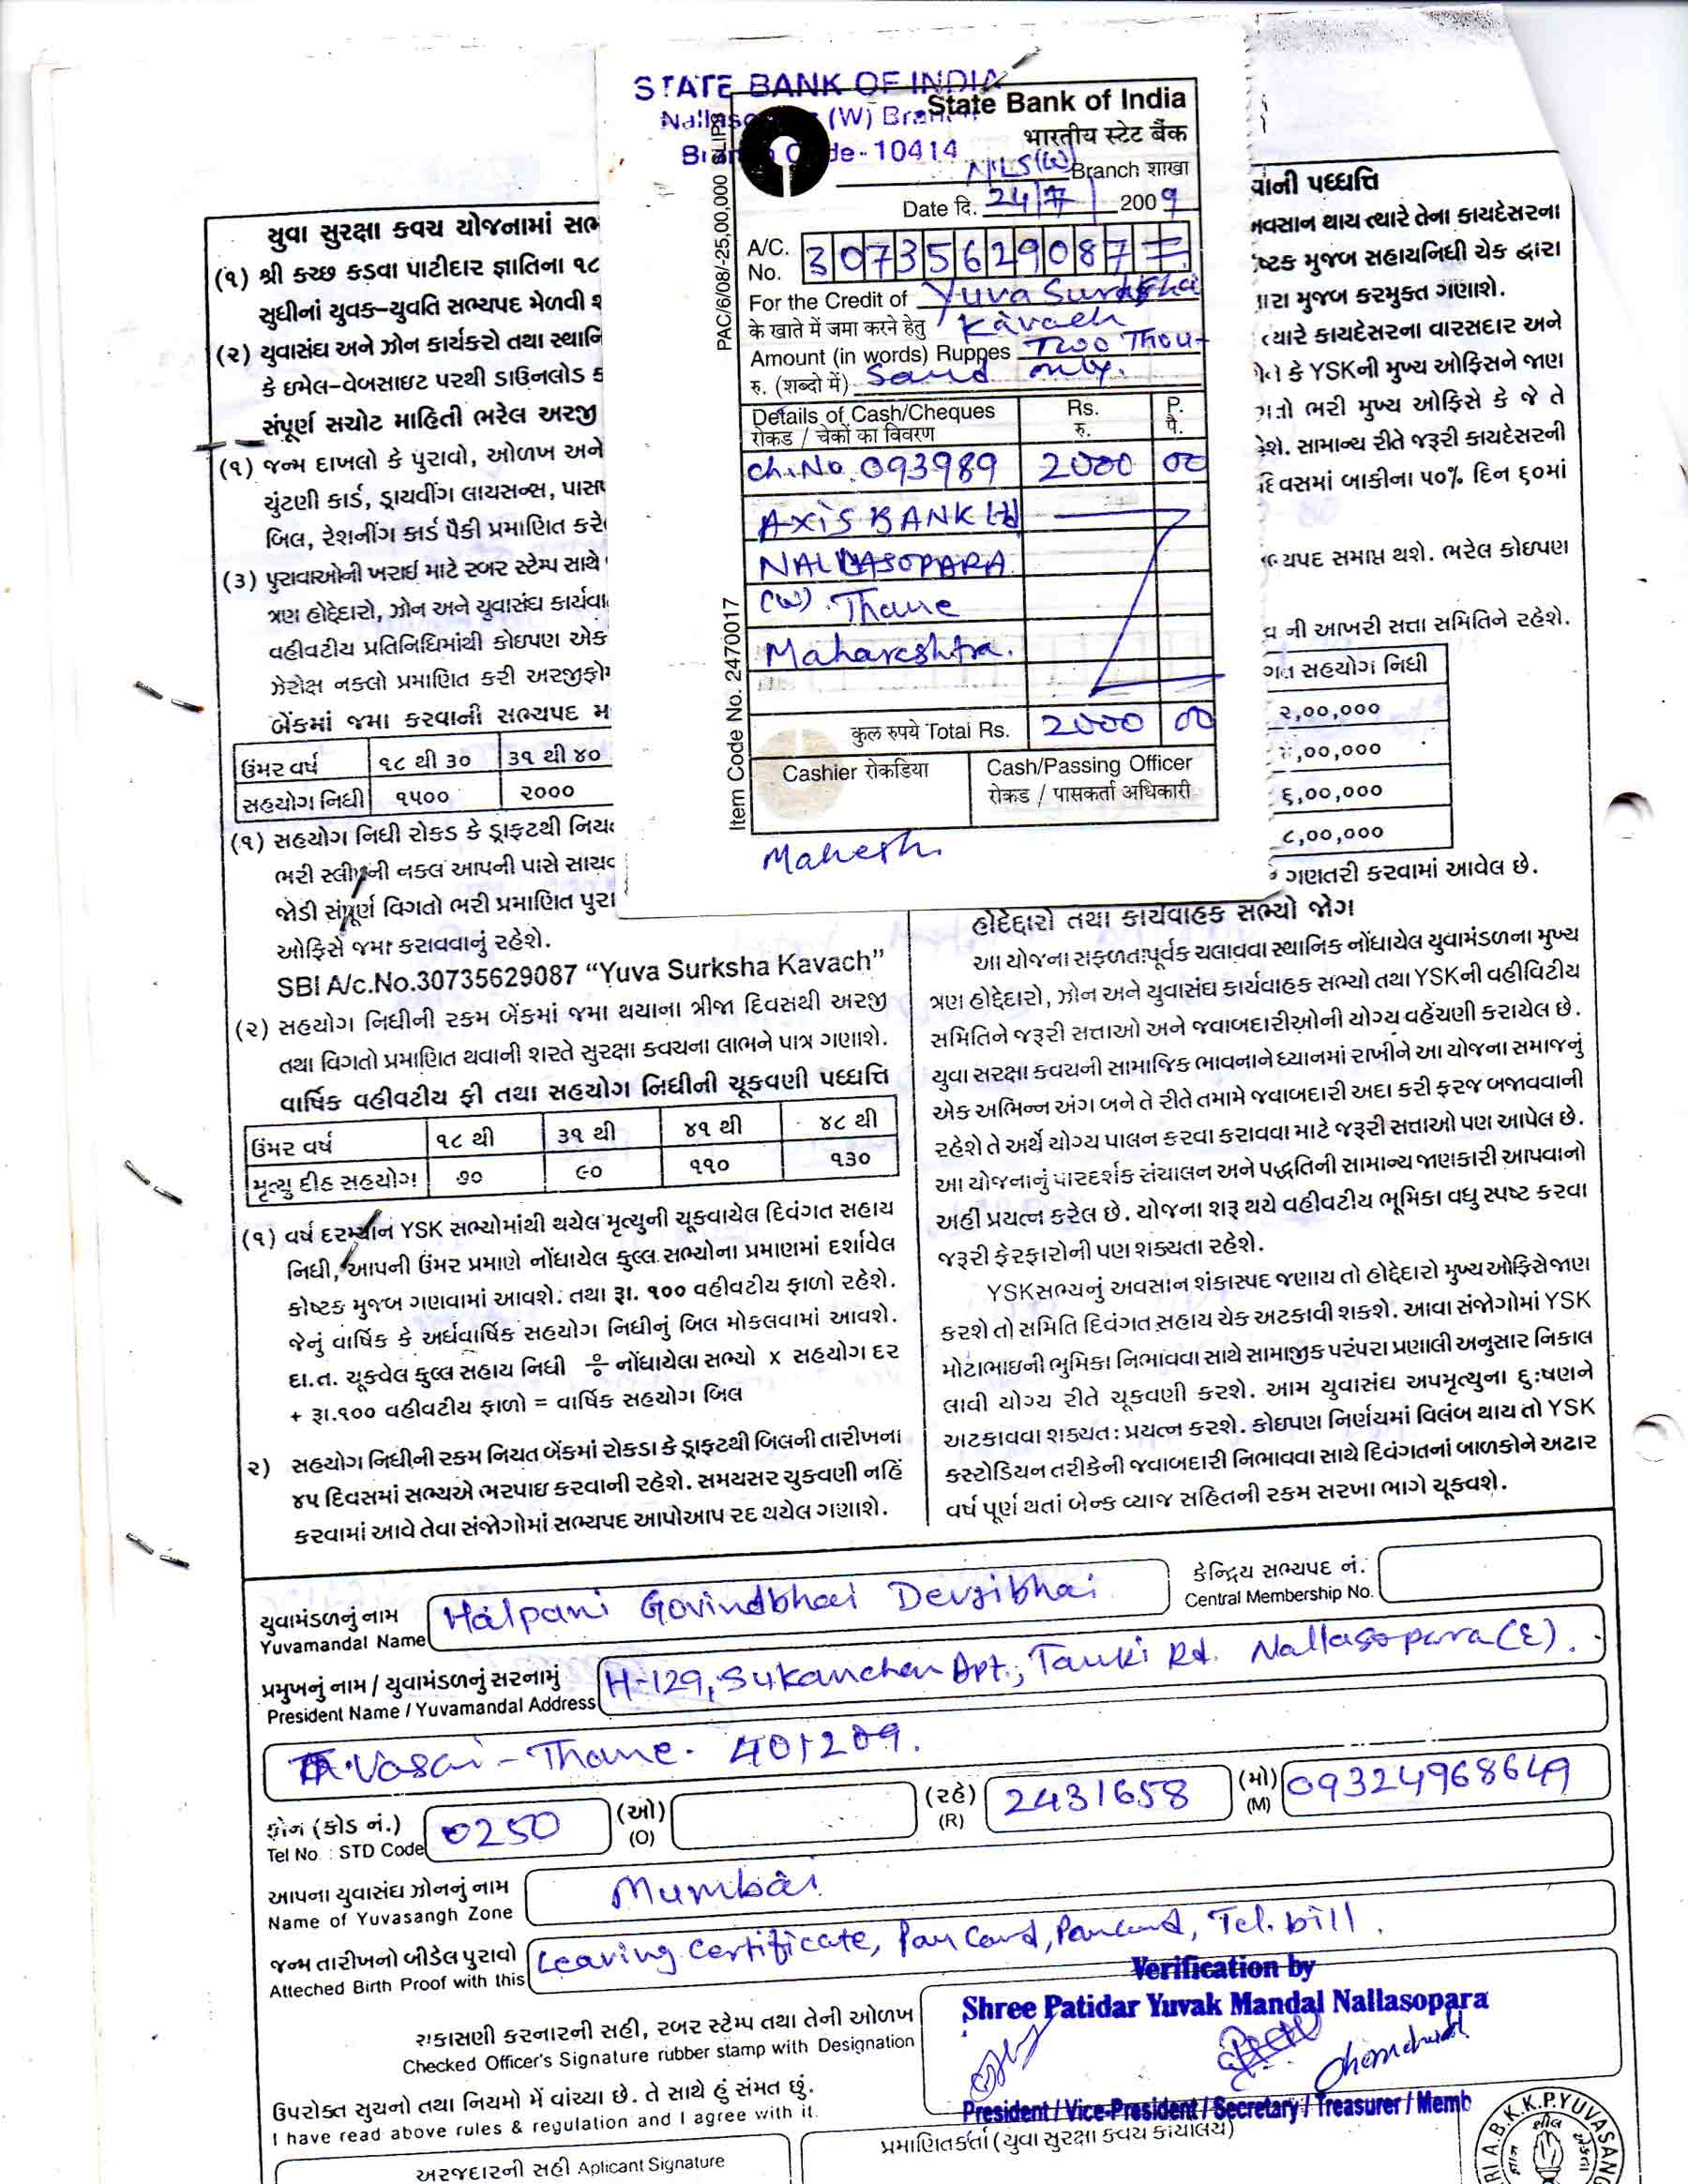 STATE BANK OF INDIA
(W) Branch
Branch Code - 10414
State Bank of India
भारतीय स्टेट बैंक
NLS(W) Branch शाखा
Date दि. 24/7 2009
PAC/6/08/-25,00,000 SLIPS
Item Code No. 2470017
A/C. No. 30735629087
For the Credit of Yuva Suraksha
के खाते में जमा करने हेतु Kavach
Amount (in words) Ruppes Two Thou-
रु. (शब्दो में) Sand only.
Details of Cash/Cheques Rs. P.
रोकड / चेकों का विवरण रु. पै.
Ch. No. 093989 2000 00
AXIS BANK Ltd
NALLASOPARA
(W). Thane
Maharashtra.
कुल रुपये Total Rs. 2000 00
Cashier रोकडिया Cash/Passing Officer
रोकड / पासकर्ता अधिकारी
Mahesh
યુવા સુરક્ષા કવચ યોજનામાં સભ
(૧) શ્રી કચ્છ કડવા પાટીદાર જ્ઞાતિના ૧૮
સુધીનાં યુવક-યુવતિ સભ્યપદ મેળવી શ
(૨) યુવાસંઘ અને ઝોન કાર્યકરો તથા સ્થાનિ
કે ઇમેલ-વેબસાઇટ પરથી ડાઉનલોડ ક
સંપૂર્ણ સચોટ માહિતી ભરેલ અરજી
(૧) જન્મ દાખલો કે પુરાવો, ઓળખ અને
ચુંટણી કાર્ડ, ડ્રાયવીંગ લાયસન્સ, પાસપ
બિલ, રેશનીંગ કાર્ડ પૈકી પ્રમાણિત કરે
(૩) પુરાવાઓની ખરાઈ માટે રબર સ્ટેમ્પ સાથે
ત્રણ હોદ્દેદારો, ઝોન અને યુવાસંઘ કાર્યવા
વહીવટીય પ્રતિનિધિમાંથી કોઇપણ એક
ઝેરોક્ષ નકલો પ્રમાણિત કરી અરજીફોમ
બેંકમાં જમા કરવાની સભ્યપદ મ
ઉંમર વર્ષ ૧૮ થી ૩૦ ૩૧ થી ૪૦
સહયોગ નિધી ૧૫૦૦ ૨૦૦૦
(૧) સહયોગ નિધી રોકડ કે ડ્રાફટથી નિય
ભરી સ્લીપની નકલ આપની પાસે સાચવ
જોડી સંપૂર્ણ વિગતો ભરી પ્રમાણિત પુરા
ઓફિસે જમા કરાવવાનું રહેશે.
SBI A/c.No.30735629087 “Yuva Surksha Kavach”
(૨) સહયોગ નિધીની રકમ બેંકમાં જમા થયાના ત્રીજા દિવસથી અરજી
તથા વિગતો પ્રમાણિત થવાની શરતે સુરક્ષા કવચના લાભને પાત્ર ગણાશે.
વાર્ષિક વહીવટીય ફી તથા સહયોગ નિધીની ચૂકવણી પધ્ધતિ
ઉંમર વર્ષ ૧૮ થી ૩૧ થી ૪૧ થી ૪૮ થી
મૃત્યુ દીઠ સહયોગ ૭૦ ૯૦ ૧૧૦ ૧૩૦
(૧) વર્ષ દરમ્યાન YSK સભ્યોમાંથી થયેલ મૃત્યુની ચૂકવાયેલ દિવંગત સહાય
નિધી, આપની ઉંમર પ્રમાણે નોંધાયેલ કુલ્લ સભ્યોના પ્રમાણમાં દર્શાવેલ
કોષ્ટક મુજબ ગણવામાં આવશે. તથા રૂા. ૧૦૦ વહીવટીય ફાળો રહેશે.
જેનું વાર્ષિક કે અર્ધવાર્ષિક સહયોગ નિધીનું બિલ મોકલવામાં આવશે.
દા.ત. ચૂકવેલ કુલ્લ સહાય નિધી ÷ નોંધાયેલા સભ્યો x સહયોગ દર
+ રૂા.૧૦૦ વહીવટીય ફાળો = વાર્ષિક સહયોગ બિલ
૨) સહયોગ નિધીની રકમ નિયત બેંકમાં રોકડા કે ડ્રાફટથી બિલની તારીખના
૪૫ દિવસમાં સભ્યએ ભરપાઇ કરવાની રહેશે. સમયસર ચુકવણી નહિં
કરવામાં આવે તેવા સંજોગોમાં સભ્યપદ આપોઆપ રદ થયેલ ગણાશે.
વાની પધ્ધતિ
અવસાન થાય ત્યારે તેના કાયદેસરના
ષ્ટક મુજબ સહાયનિધી ચેક દ્વારા
ારા મુજબ કરમુક્ત ગણાશે.
ત્યારે કાયદેસરના વારસદાર અને
કે YSKની મુખ્ય ઓફિસને જાણ
ગતો ભરી મુખ્ય ઓફિસે કે જે તે
શે. સામાન્ય રીતે જરૂરી કાયદેસરની
દિવસમાં બાકીના ૫૦% દિન ૬૦માં
ભ્યપદ સમાપ્ત થશે. ભરેલ કોઇપણ
ની આખરી સત્તા સમિતિને રહેશે.
ગત સહયોગ નિધી
૨,૦૦,૦૦૦
,૦૦,૦૦૦
૬,૦૦,૦૦૦
૮,૦૦,૦૦૦
ગણતરી કરવામાં આવેલ છે.
હોદ્દેદારો તથા કાર્યવાહક સભ્યો જોગ
આ યોજના સફળતાપૂર્વક ચલાવવા સ્થાનિક નોંધાયેલ યુવામંડળના મુખ્ય
ત્રણ હોદ્દેદારો, ઝોન અને યુવાસંઘ કાર્યવાહક સભ્યો તથા YSKની વહીવિટીય
સમિતિને જરૂરી સત્તાઓ અને જવાબદારીઓની યોગ્ય વહેંચણી કરાયેલ છે.
યુવા સરક્ષા કવચની સામાજિક ભાવનાને ધ્યાનમાં રાખીને આ યોજના સમાજનું
એક અભિન્ન અંગ બને તે રીતે તમામે જવાબદારી અદા કરી ફરજ બજાવવાની
રહેશે તે અર્થે યોગ્ય પાલન કરવા કરાવવા માટે જરૂરી સત્તાઓ પણ આપેલ છે.
આ યોજનાનું પારદર્શક સંચાલન અને પદ્ધતિની સામાન્ય જાણકારી આપવાનો
અહીં પ્રયત્ન કરેલ છે. યોજના શરૂ થયે વહીવટીય ભૂમિકા વધુ સ્પષ્ટ કરવા
જરૂરી ફેરફારોની પણ શક્યતા રહેશે.
YSK સભ્યનું અવસાન શંકાસ્પદ જણાય તો હોદ્દેદારો મુખ્ય ઓફિસે જાણ
કરશે તો સમિતિ દિવંગત સહાય ચેક અટકાવી શકશે. આવા સંજોગોમાં YSK
મોટાભાઇની ભુમિકા નિભાવવા સાથે સામાજીક પરંપરા પ્રણાલી અનુસાર નિકાલ
લાવી યોગ્ય રીતે ચૂકવણી કરશે. આમ યુવાસંઘ અપમૃત્યુના દુઃષણને
અટકાવવા શક્યતઃ પ્રયત્ન કરશે. કોઇપણ નિર્ણયમાં વિલંબ થાય તો YSK
કસ્ટોડિયન તરીકેની જવાબદારી નિભાવવા સાથે દિવંગતનાં બાળકોને અઢાર
વર્ષ પૂર્ણ થતાં બેન્ક વ્યાજ સહિતની રકમ સરખા ભાગે ચૂકવશે.
યુવામંડળનું નામ Halpani Govindbhai Devjibhai
Yuvamandal Name
કેન્દ્રિય સભ્યપદ નં.
Central Membership No.
પ્રમુખનું નામ / યુવામંડળનું સરનામું
President Name / Yuvamandal Address
H-129, Sukanchan Apt., Tanki Rd. Nallasopara (E).
Vasai - Thane. 401209.
ફોન (કોડ નં.) 0250 (ઓ) (રહે) 2431658 (મો) 09324968649
Tel No. : STD Code (O) (R) (M)
આપના યુવાસંઘ ઝોનનું નામ Mumbai
Name of Yuvasangh Zone
જન્મ તારીખનો બીડેલ પુરાવો Leaving Certificate, Pan Card, Pan Card, Tel. bill.
Atteched Birth Proof with this
Verification by
Shree Patidar Yuvak Mandal Nallasopara
ચકાસણી કરનારની સહી, રબર સ્ટેમ્પ તથા તેની ઓળખ
Checked Officer's Signature rubber stamp with Designation
President / Vice-President / Secretary / Treasurer / Memb
ઉપરોક્ત સુચનો તથા નિયમો મેં વાંચ્યા છે. તે સાથે હું સંમત છું.
I have read above rules & regulation and I agree with it.
પ્રમાણિતકર્તા (યુવા સુરક્ષા કવચ કાર્યાલય)
અરજદારની સહી Aplicant Signature
A.B.K.K.P.YUVASANG